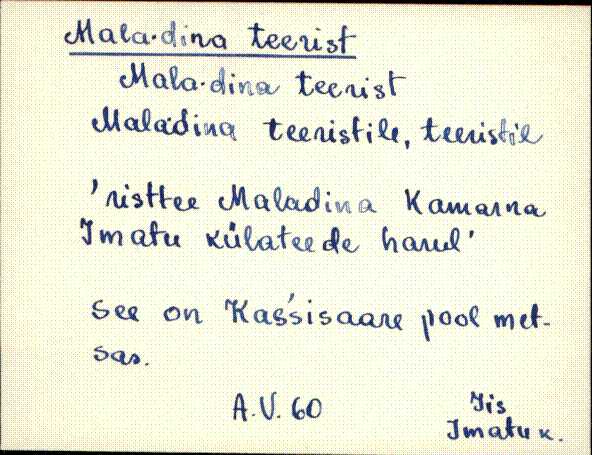 Mala·dina teerist
Mala·dina teerist
Maladina teeristile, teeristile
'risttee Maladina Kamarna
Imatu külateede harul'
see on Kas's'isaare pool met-
sas.
A.V. 60 Iis
Imatu k.